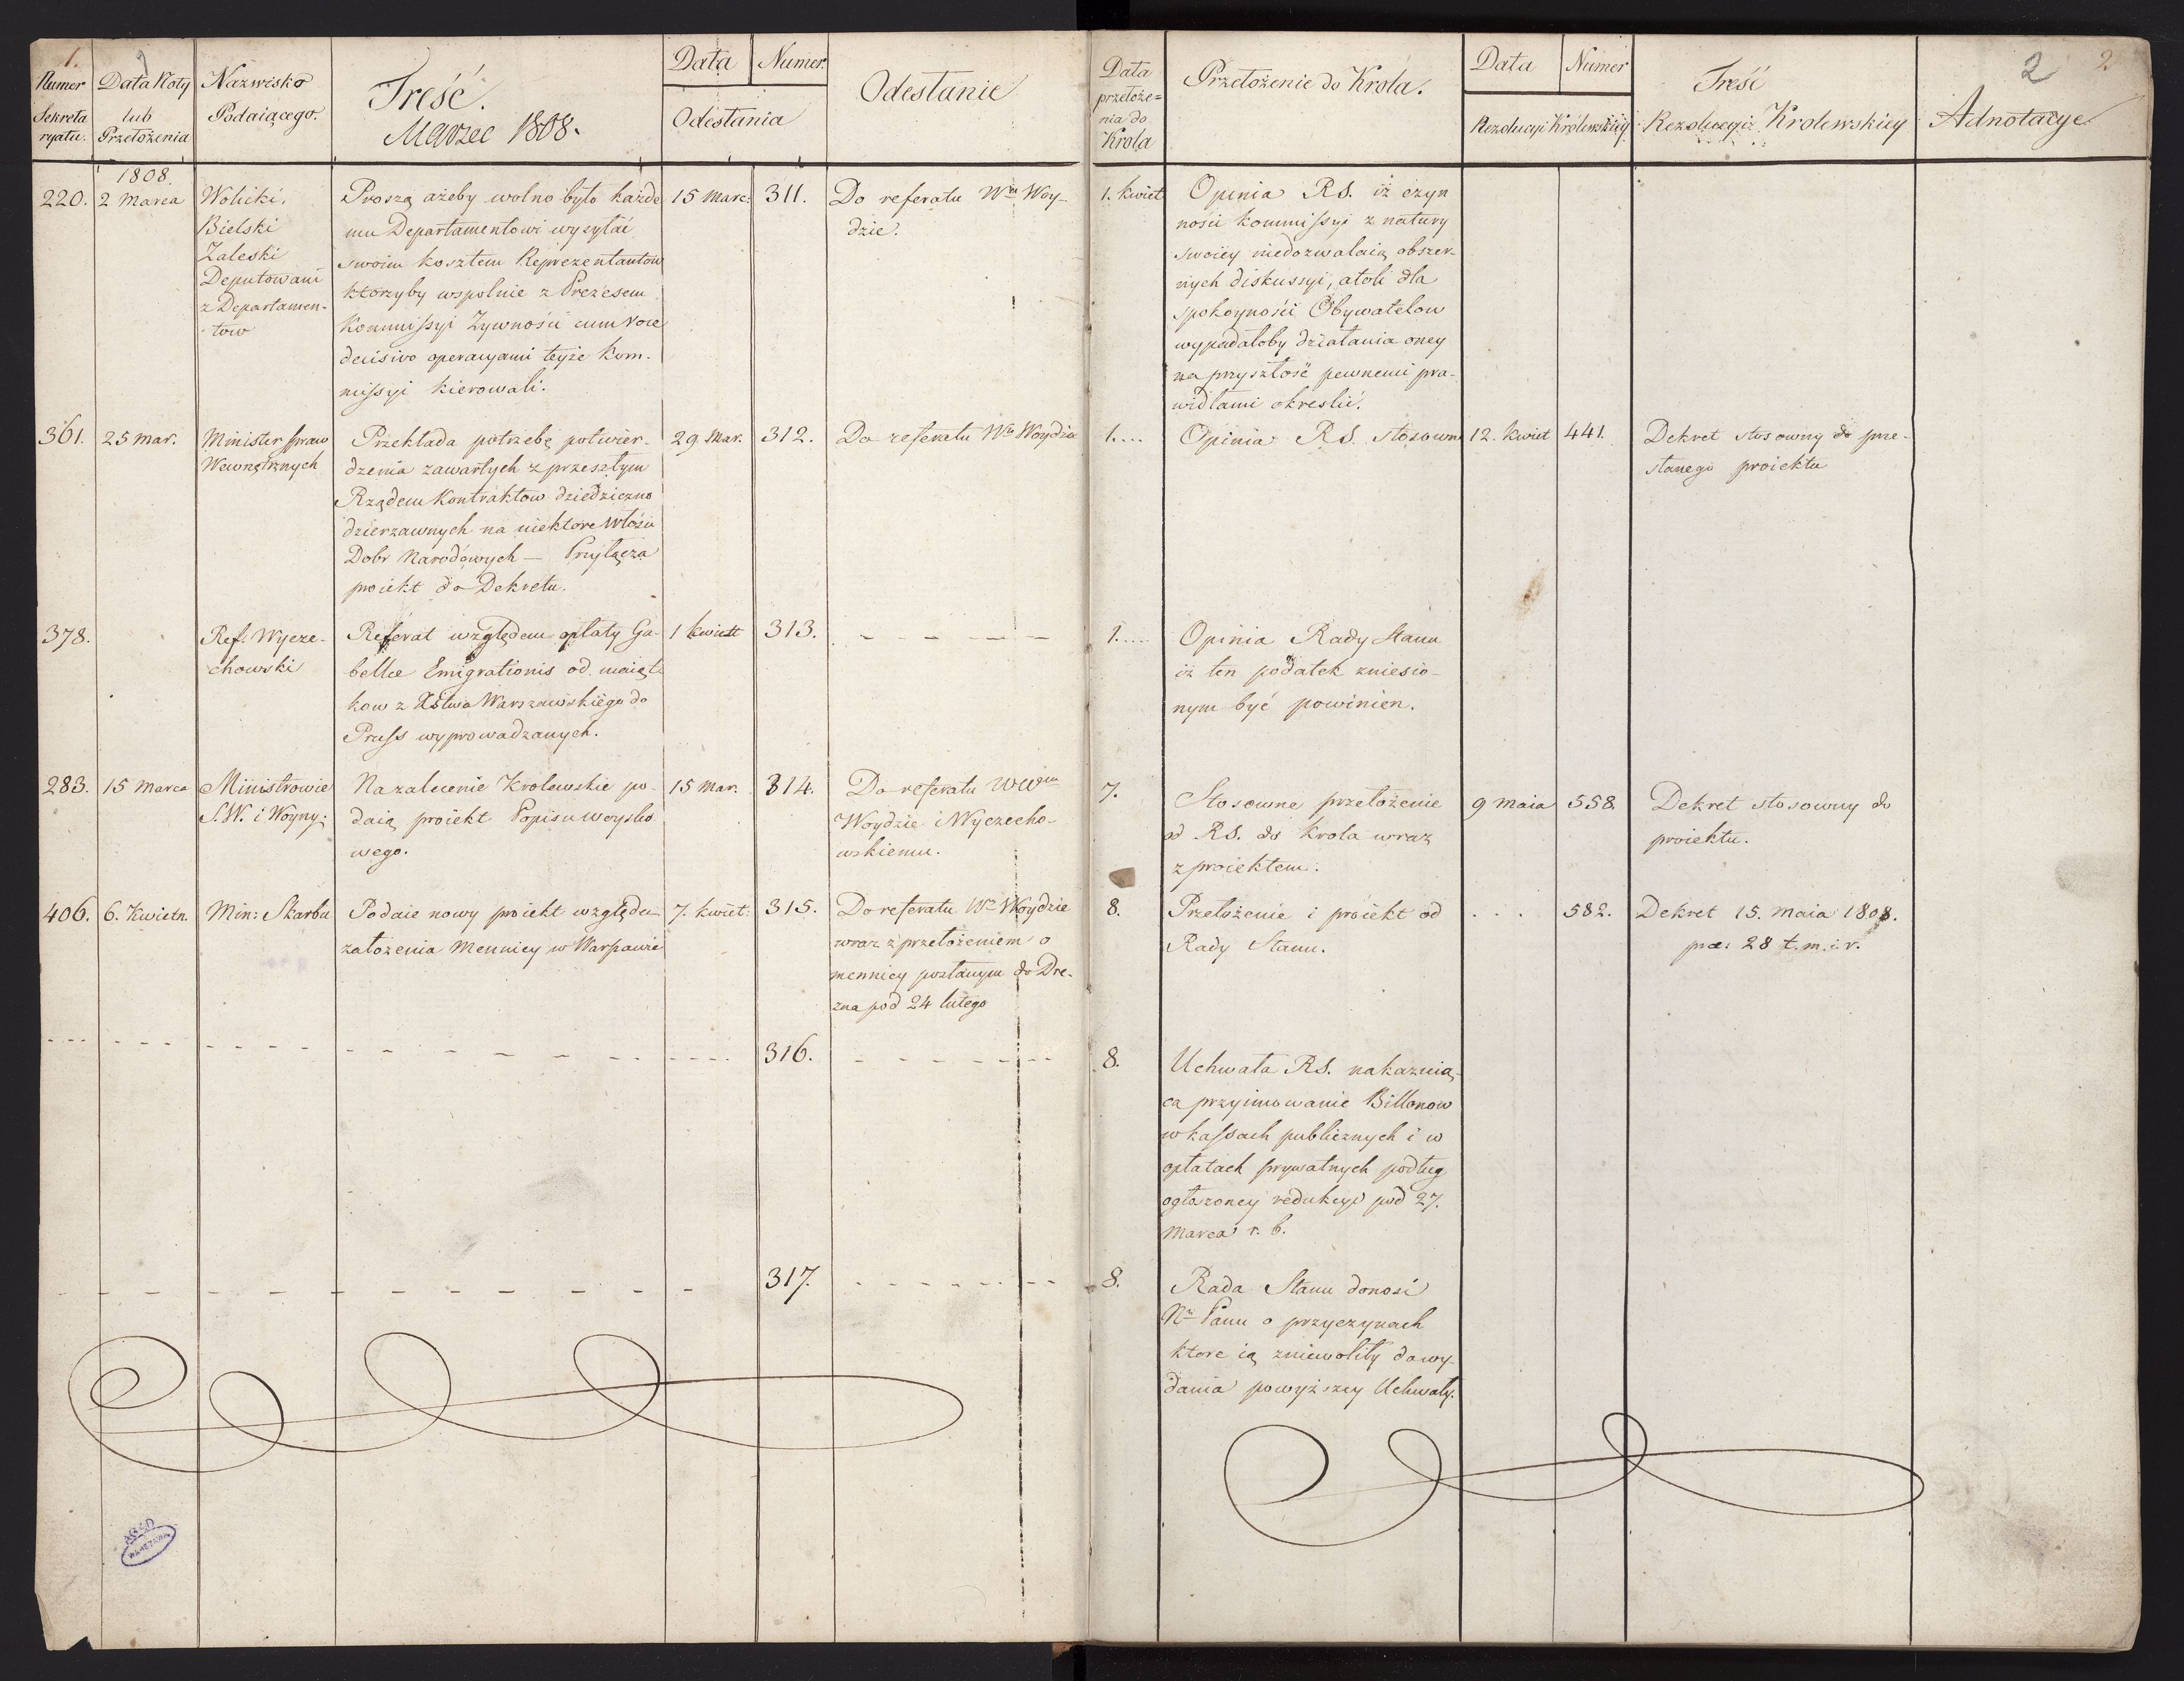 1.
Numer
Sekreta
ryatu.
Data Noty
lub
Przełożenia
Nazwisko
Podaiącego.
Treść.
Marzec 1808.
Data
Numer.
Odesłania
Odesłanie
Data
przełoże=
nia do
Krola
Przełożenie do Krola.
Data
Numer
Rezolucyi Królewskiey
Treść
Rezolucyi Krolewskiey
Adnotacye
2
2
1808.
220.
2 Marca
Wolicki.
Bielski
Zaleski
Deputowani
z Departamen-
tow
Proszą ażeby wolno było każde
mu Departamentowi wysyłać
swoim kosztem Reprezentantow
ktorzyby wspolnie z Prezesem
Kommissyi Zywności cum voce
decisivo operacyami teyże kom-
missyi kierowali.
15 Marc:
311.
Do referatu Wmu Woy-
dzie.
1. kwiet
Opinia RS. iż czyn
ności kommissyi z natury
swoiey niedozwalaią obszer-
nych diskussyi, atoli dla
spokoyności Obywatelow
wypadałoby działania oney
na przyszłość pewnemi pra-
widłami okreslić.
361.
25 Mar.
Minister spraw
Wewnętrznych
Przekłada potrzebę potwier-
dzenia zawartych z przeszłym
Rządem Kontraktow dziedziczno
dzierzawnych na niektore Włości
Dobr Narodowych — Przyłącza
proiekt do Dekretu.
29 Mar.
312.
Do referatu Wmu Woydzie
1....
Opinia RS. stosowna
12. kwiet
441.
Dekret stosowny do prze-
słanego proiektu
378.
Ref: Wycze-
chowski
Referat względem opłaty Ga-
bellae Emigrationis od maiąt-
kow z Xstwa Warszawskiego do
Pruss wyprowadzanych.
1 kwiet
313.
- - - - -
1....
Opinia Rady Stanu
iż ten podatek zniesio-
nym być powinien.
283.
15 Marca
Ministrowie
S.W. i Woyny.
Na zalecenie Krolewskie po-
daią proiekt Popisu woysko
wego.
15 Mar.
314.
Do referatu WWm
Woydzie i Wyczecho-
wskiemu.
7.
Stosowne przełożenie
od RS. do Krola wraz
z proiektem.
9 Maia
558.
Dekret stosowny do
proiektu.
406.
6. Kwietn.
Min: Skarbu
Podaie nowy proiekt względem
założenia Mennicy w Warszawie
7. kwiet:
315.
Do referatu Wmu Woydzie
wraz z przełożeniem o
mennicy posłanym do Dre-
zna pod 24 lutego
8.
Przełożenie i proiekt od
Rady Stanu.
. . .
582.
Dekret 15. Maia 1808.
prae: 28 t.m.i.r.
316.
8.
Uchwała RS. nakazuią-
ca przyimowanie Billonow
w kassach publicznych i w
opłatach prywatnych podług
ogłoszoney redukcyi pod 27.
Marca r. b.
317.
8.
Rada Stanu donosi
Nu Panu o przyczynach
ktore ią zniewoliły do wy-
dania powyższey Uchwały.
AGAD
WARSZAWA